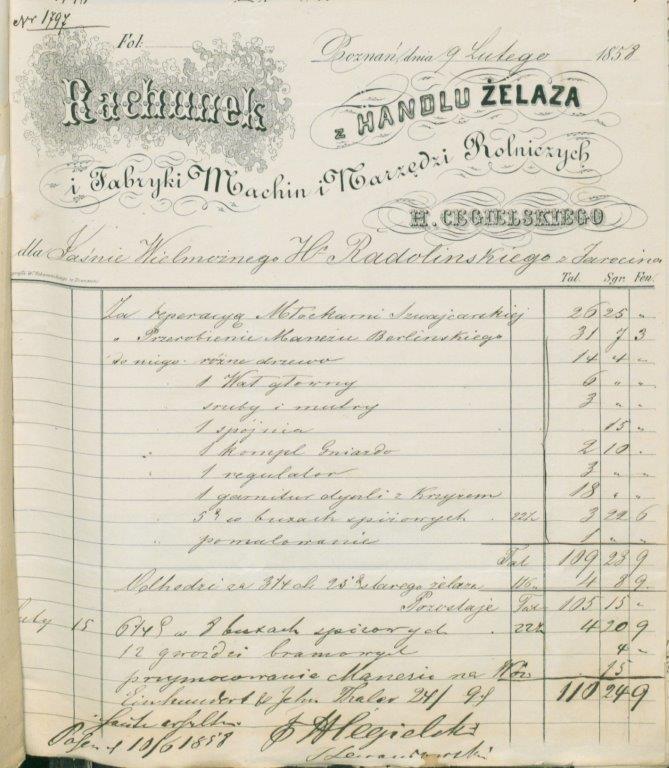 Nr 1797
Fol.
Poznań, dnia 9 Lutego 1858
Rachunek
z HANDLU ŻELAZA
i Fabryki Machin i Narzędzi Rolniczych
H. CEGIELSKIEGO
dla Jaśnie Wielmożnego Hr Radolinskiego z Jarocina
Tal. Sgr. Fen.
Za reperacyą Młockarni Szwajcarskiej 26 25 "
" Przerobienie Maneżu Berlinskiego 31 7 3
do niego różne drzewo 14 4 "
1 Wał głowny 6 " "
sruby i mutry 3 " "
1 spójnia 15 "
1 kompl. Gniazdo 2 10 "
1 regulator 3 " "
1 garnitur dyszli z Krzyżem 18 " "
w buxach spiżowych 3 22 6
pomalowanie 1 " "
Tal 109 28 9
Odchodzi za starego żelaza 4 8 9
Pozostaje Tal 105 15 "
15 8 buxach spiżowych 4 20 9
12 gwoździ bramowych 4 "
przymocowanie Maneżu na Wóz 15
110 24 9
Einhundert & Zehn Thaler 24/ 9
Posen d 10/6 1858
HCegielski
Lewandowski